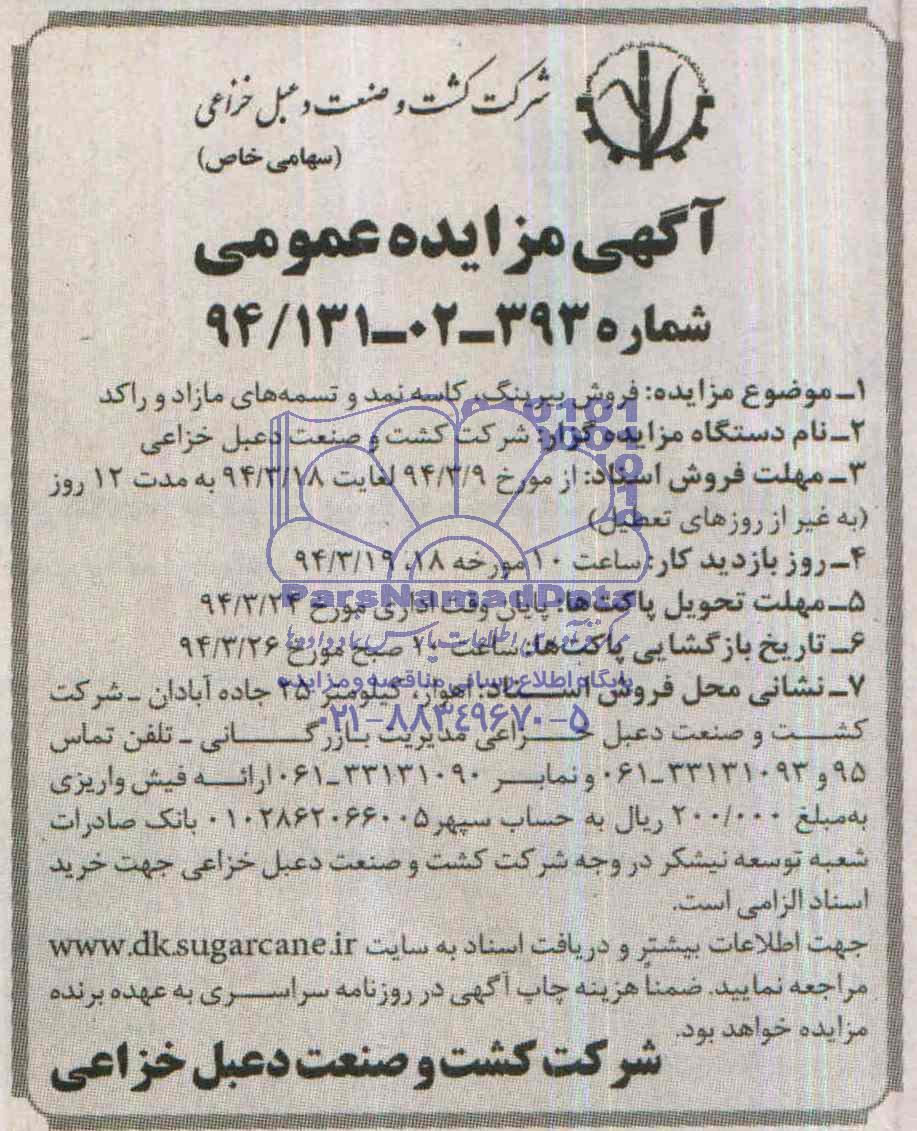 شرکت کشت و صنعت دعبل خزاعی
(سهامی خاص)
آگهی مزایده عمومی
شماره ۳۹۳-۰۲-۹۴/۱۳۱
۱- موضوع مزایده: فروش بیرینگ، کاسه نمد و تسمه‌های مازاد و راکد
۲- نام دستگاه مزایده گزار: شرکت کشت و صنعت دعبل خزاعی
۳- مهلت فروش اسناد: از مورخ ۹۴/۳/۹ لغایت ۹۴/۳/۱۸ به مدت ۱۲ روز
(به غیر از روزهای تعطیل)
۴- روز بازدید کار: ساعت ۱۰ مورخه ۱۸، ۹۴/۳/۱۹
ParsNamadData
۵- مهلت تحویل پاکت‌ها: پایان وقت اداری مورخ ۹۴/۳/۲۴
۶- تاریخ بازگشایی پاکت‌ها: ساعت ۱۰ صبح مورخ ۹۴/۳/۲۶
پایگاه اطلاع رسانی مناقصه و مزایده
۷- نشانی محل فروش اسناد: اهواز، کیلومتر ۲۵ جاده آبادان - شرکت
۰۲۱-۸۸۳۴۹۶۷۰-۵
کشت و صنعت دعبل خزاعی مدیریت بازرگانی - تلفن تماس
۹۵ و ۳۳۱۳۱۰۹۳-۰۶۱ و نمابر ۳۳۱۳۱۰۹۰-۰۶۱ ارائه فیش واریزی
به‌مبلغ ۲۰۰/۰۰۰ ریال به حساب سپهر ۰۱۰۲۸۶۲۰۶۶۰۰۵ بانک صادرات
شعبه توسعه نیشکر در وجه شرکت کشت و صنعت دعبل خزاعی جهت خرید
اسناد الزامی است.
جهت اطلاعات بیشتر و دریافت اسناد به سایت www.dk.sugarcane.ir
مراجعه نمایید. ضمناً هزینه چاپ آگهی در روزنامه سراسری به عهده برنده
مزایده خواهد بود.
شرکت کشت و صنعت دعبل خزاعی